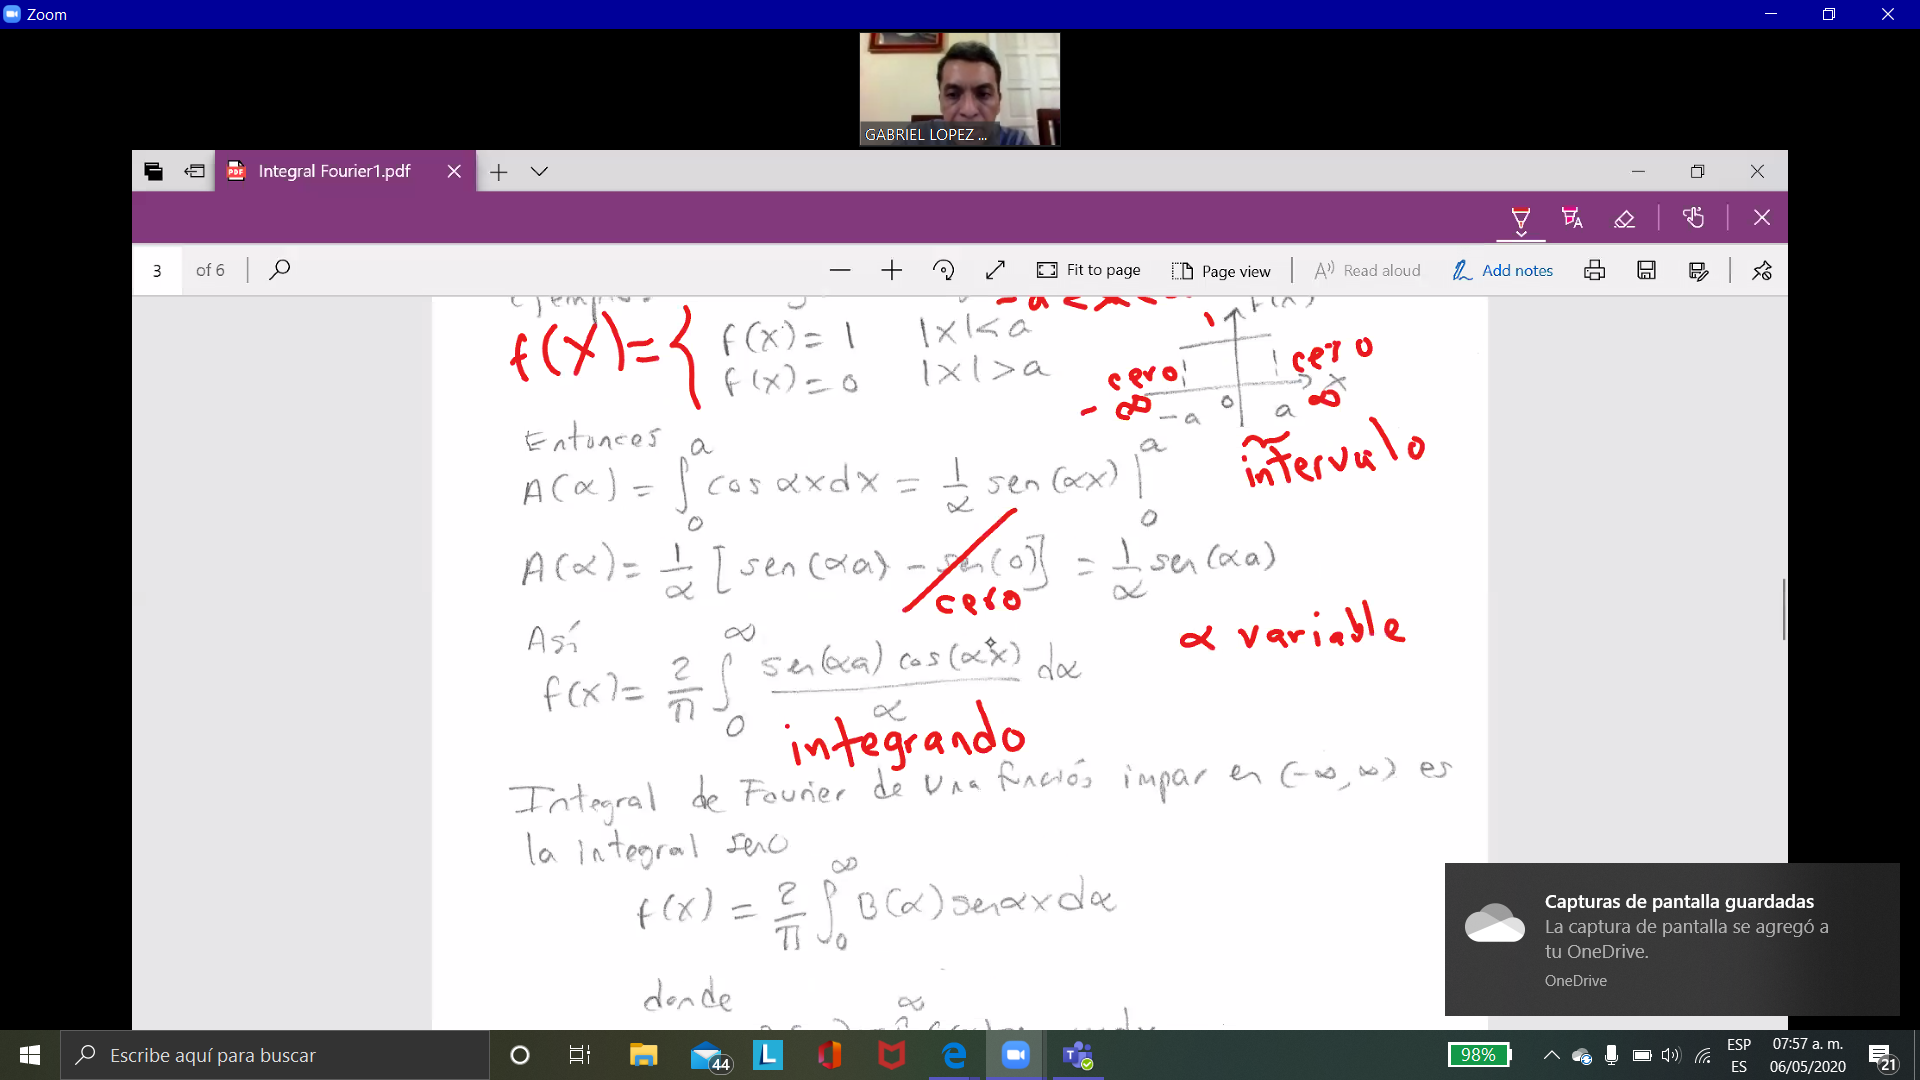 Zoom
GABRIEL LOPEZ ...
Integral Fourier1.pdf
3 of 6
Fit to page
Page view
Read aloud
Add notes
f(x)= { f(x)= 1 |x|< a
f(x)= 0 |x|> a
1
cero cero
- ∞ -a 0 a ∞ x
intervalo
Entonces
A(α) = ∫₀ᵃ cos αx dx = 1/α sen (αx) |₀ᵃ
A(α) = 1/α [ sen (αa) - sen (0)] = 1/α sen (αa)
cero
α variable
Así
f(x)= 2/π ∫₀^∞ sen(αa) cos(αx)/α dα
integrando
Integral de Fourier de una función impar en (-∞, ∞) es
la integral seno
f(x) = 2/π ∫₀^∞ B(α) sen αx dα
donde
Capturas de pantalla guardadas
La captura de pantalla se agregó a
tu OneDrive.
OneDrive
Escribe aquí para buscar
44
98%
ESP
ES
07:57 a. m.
06/05/2020
21